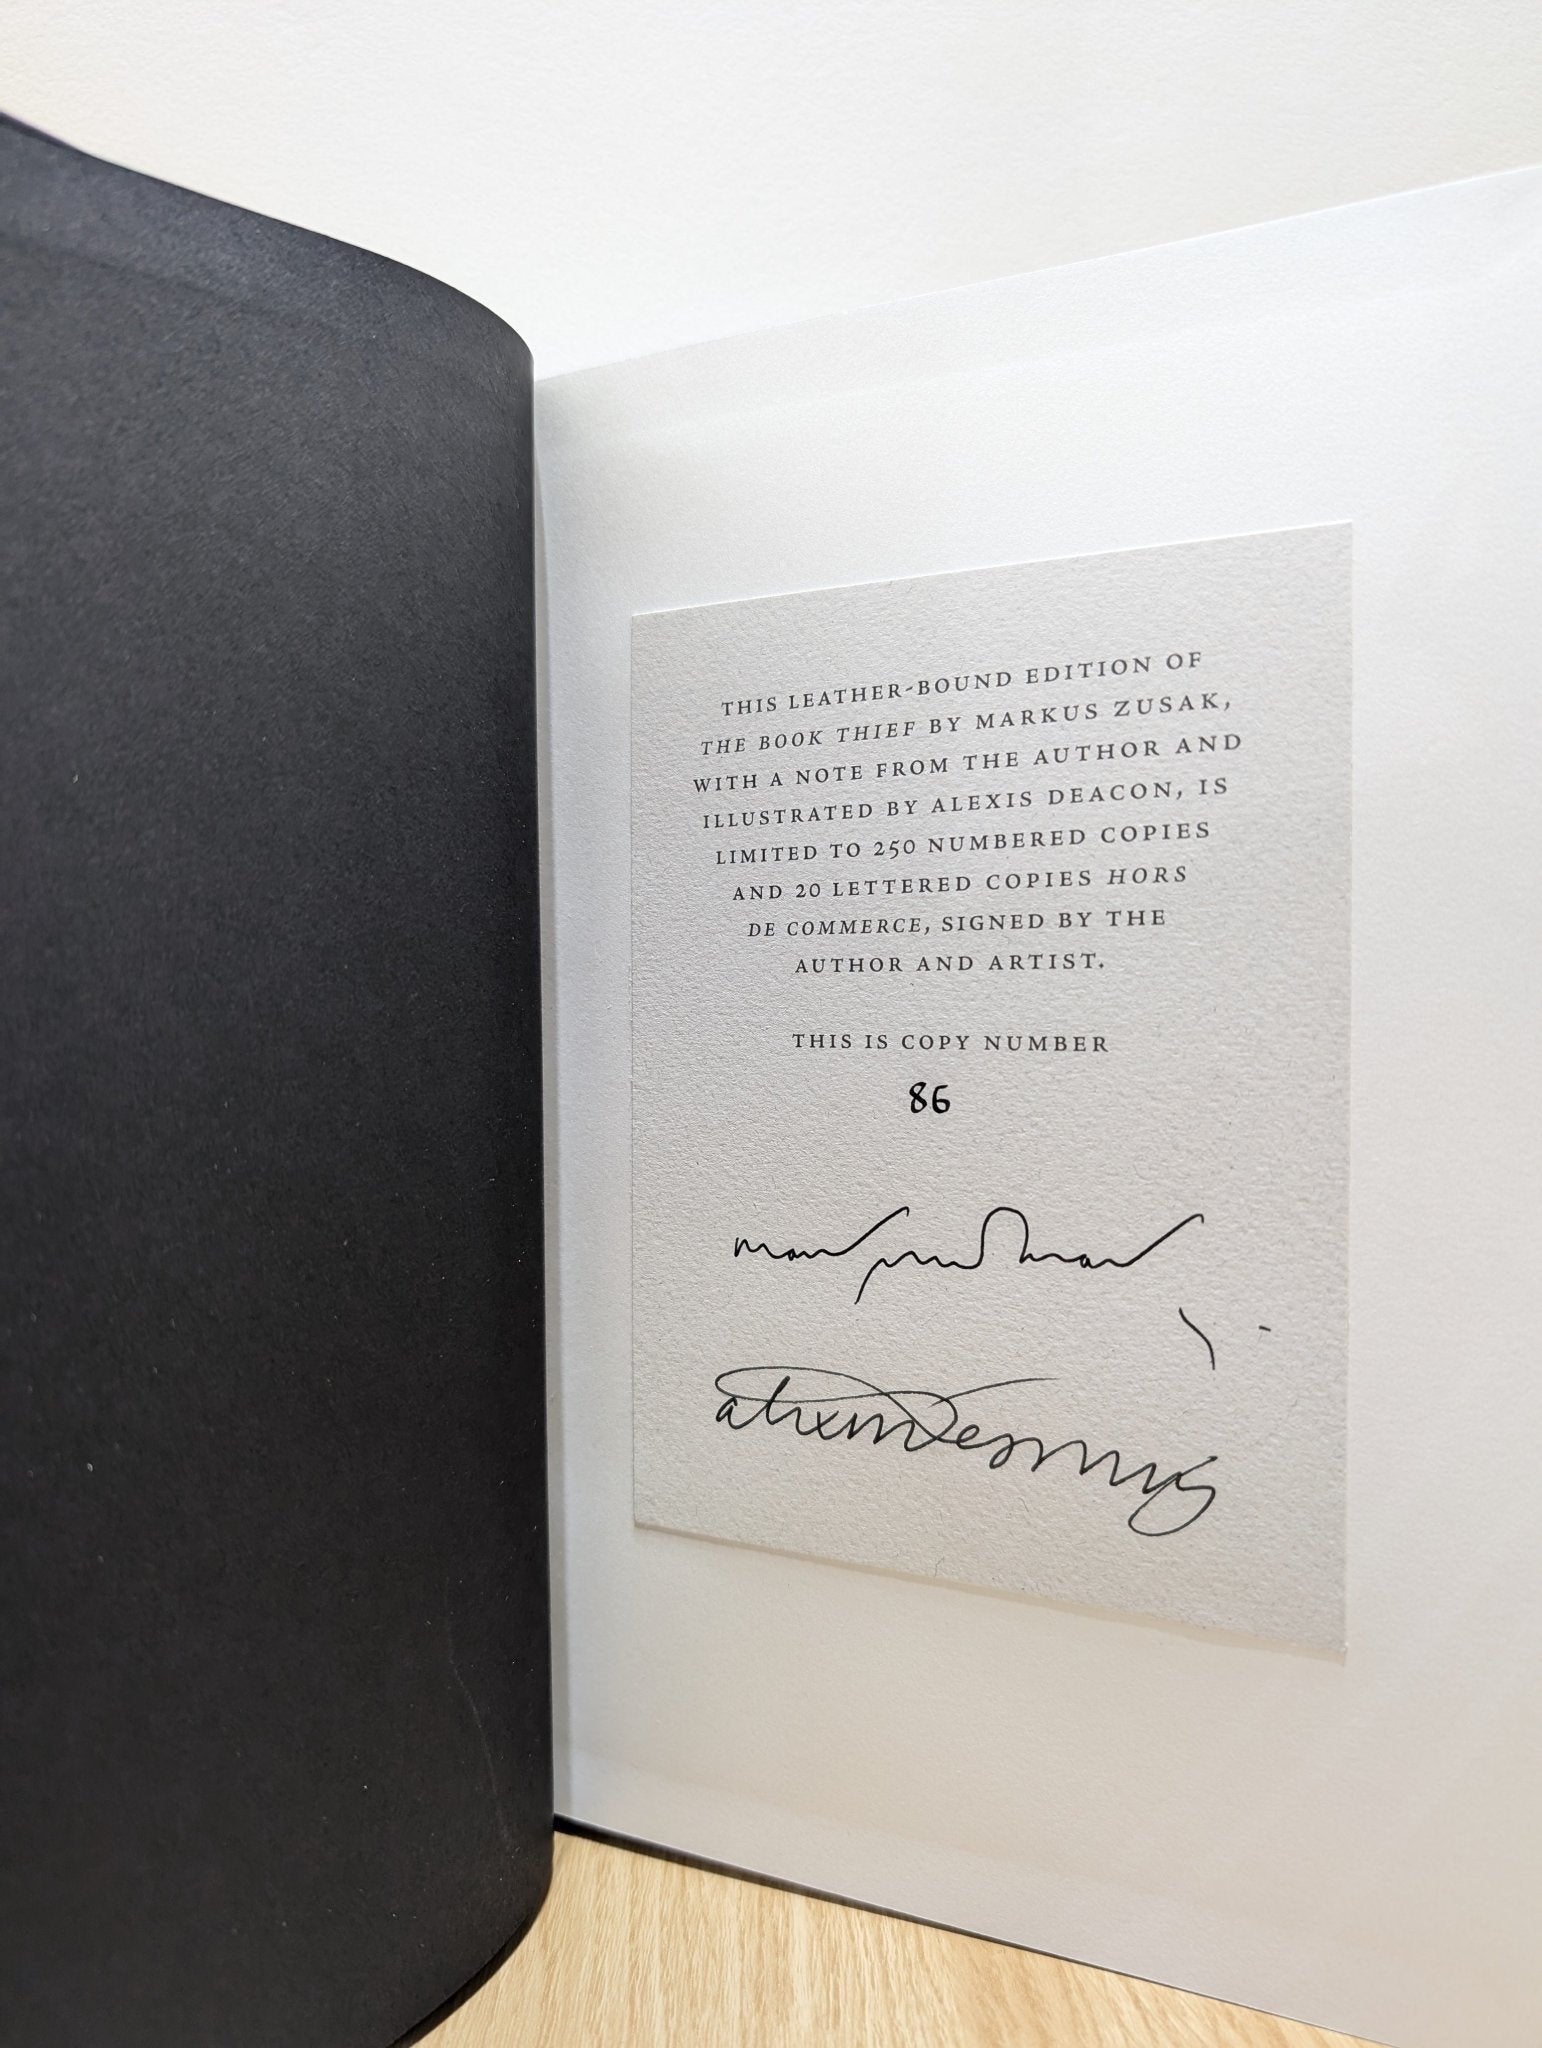 THIS LEATHER-BOUND EDITION OF
THE BOOK THIEF BY MARKUS ZUSAK,
WITH A NOTE FROM THE AUTHOR AND
ILLUSTRATED BY ALEXIS DEACON, IS
LIMITED TO 250 NUMBERED COPIES
AND 20 LETTERED COPIES HORS
DE COMMERCE, SIGNED BY THE
AUTHOR AND ARTIST.
THIS IS COPY NUMBER
86